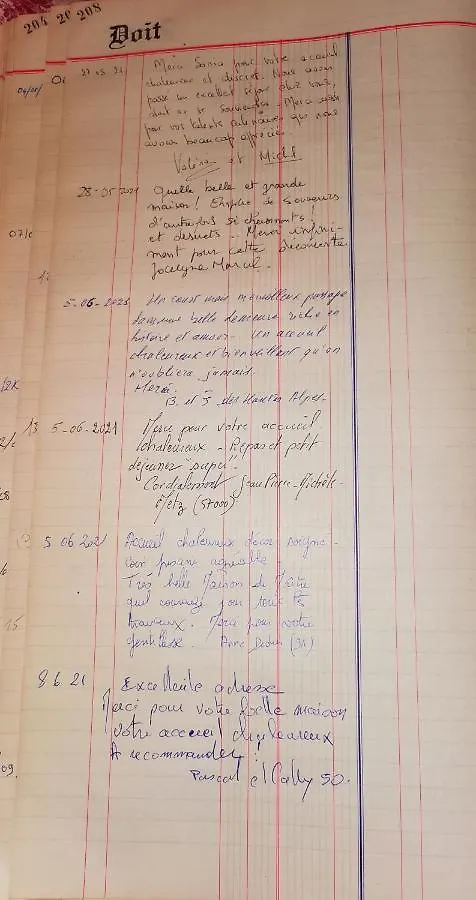 204 20 208
Doit
27.05.21 Merci Sonia pour votre accueil
chaleureux et discret. Nous avons
passé un excellent séjour chez vous,
dont on se souviendra. Merci aussi
pour vos talents culinaires que nous
avons beaucoup apprécié.
Valérie et Michel
28-05-2021 Quelle belle et grande
maison! Emplie de souvenirs
d'autrefois si charmants
et désuets - Merci infini-
ment pour cette découverte
Jocelyne Marcel.
5-06-2021 Un court mais merveilleux passage
dans une belle demeure riche en
histoire et amour. Un accueil
chaleureux et bienveillant qu'on
n'oubliera jamais.
Merci.
B. et J. des Hautes Alpes.
13 5-06-2021 Merci pour votre accueil
chaleureux - Repas et petit
déjeuner "super".
Cordialement Jean Pierre - Michèle -
Metz (57000).
5 06 2021 Accueil chaleureux décor soigné -
piscine agréable
Très belle Maison de Maître
quel courage pour tous ts
travaux. Merci pour votre
gentillesse. Anne Didier (31)
15
8 6 21 Excellente adresse
Merci pour votre belle maison
votre accueil chaleureux
A recommander !
Pascal et Cathy 50.